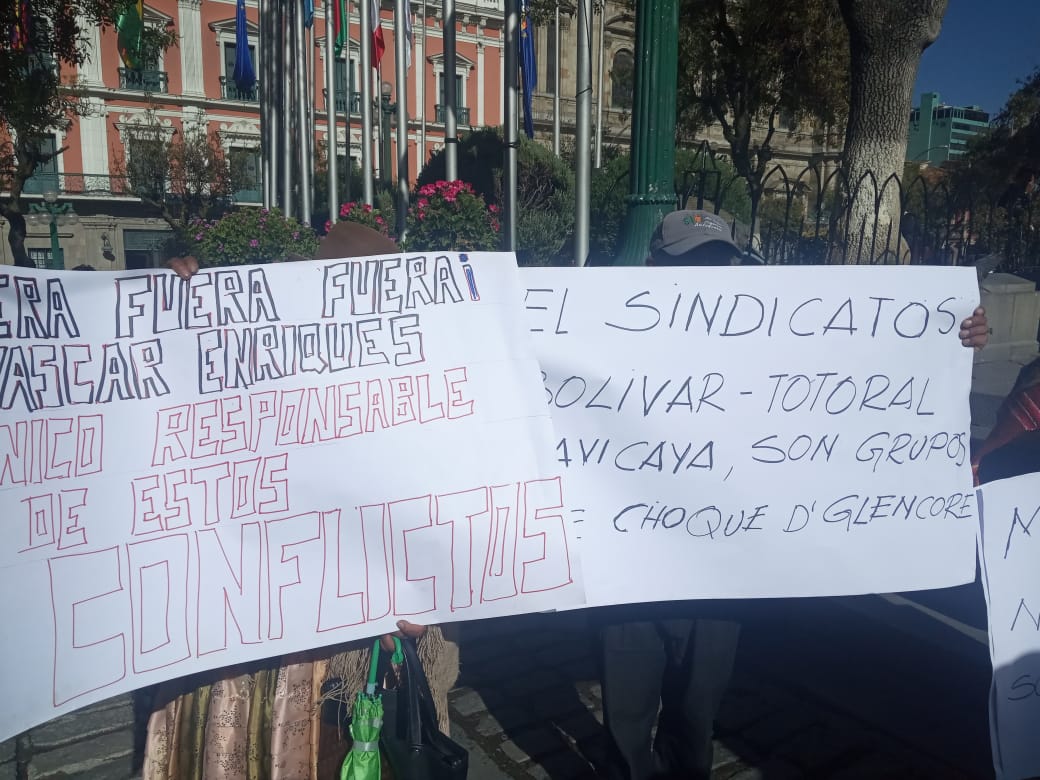 ERA FUERA FUERA¡
ASCAR ENRIQUES
NICO RESPONSABLE
DE ESTOS
CONFLICTOS
EL SINDICATOS
BOLIVAR - TOTORAL
AVICAYA, SON GRUPOS
E CHOQUE D'GLENCORE
M
N
S